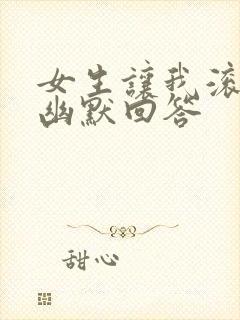 女生讓我滚
幽默回答
甜心